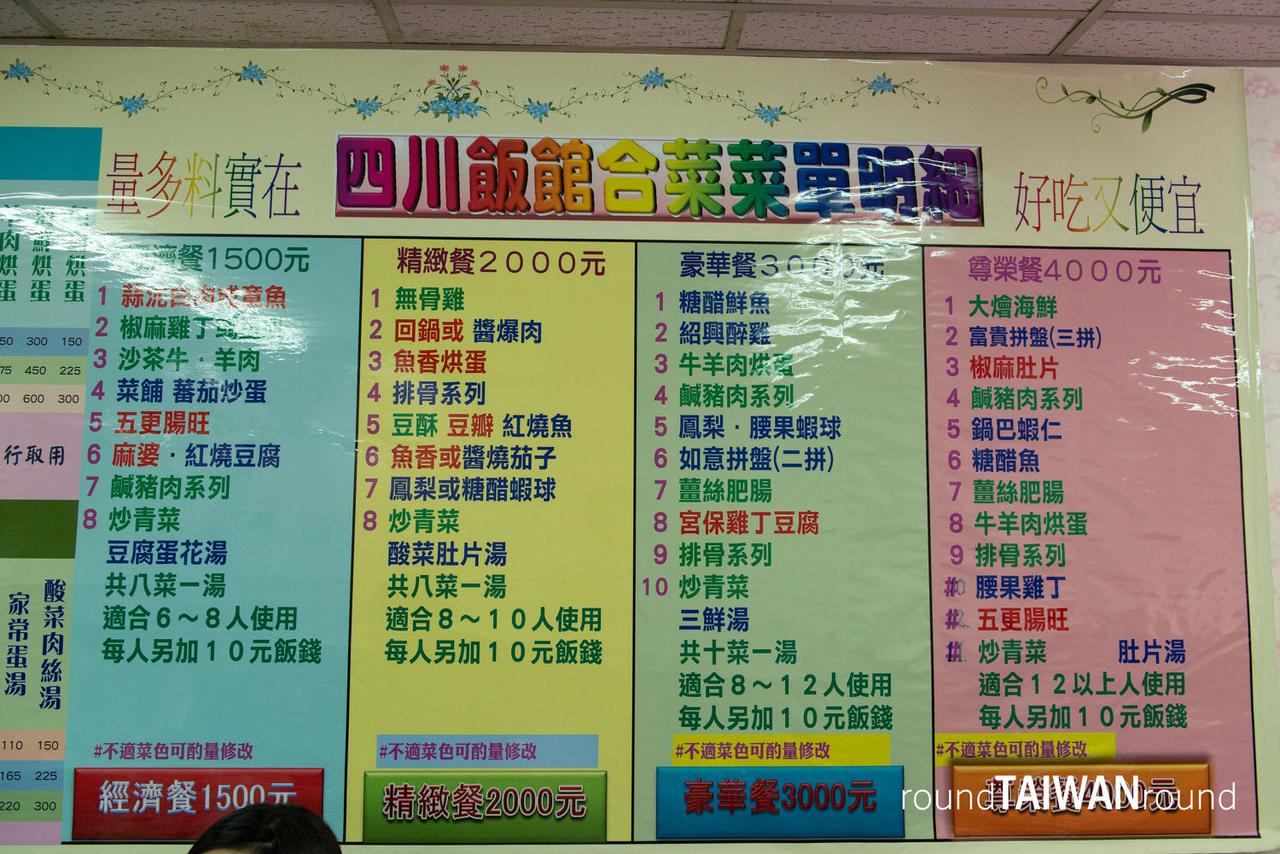 量多料實在
四川飯館合菜菜單明細
好吃又便宜
肉烘蛋
鮪烘蛋
烘蛋
50 300 150
75 450 225
00 600 300
行取用
家常蛋湯
酸菜肉絲湯
110 150
165 225
220 300
濟餐1500元
1 蒜泥白肉或章魚
2 椒麻雞丁或
3 沙茶牛‧羊肉
4 菜餔 蕃茄炒蛋
5 五更腸旺
6 麻婆‧紅燒豆腐
7 鹹豬肉系列
8 炒青菜
豆腐蛋花湯
共八菜一湯
適合6～8人使用
每人另加10元飯錢
#不適菜色可酌量修改
經濟餐1500元
精緻餐2000元
1 無骨雞
2 回鍋或 醬爆肉
3 魚香烘蛋
4 排骨系列
5 豆酥 豆瓣 紅燒魚
6 魚香或醬燒茄子
7 鳳梨或糖醋蝦球
8 炒青菜
酸菜肚片湯
共八菜一湯
適合8～10人使用
每人另加10元飯錢
#不適菜色可酌量修改
精緻餐2000元
豪華餐3000元
1 糖醋鮮魚
2 紹興醉雞
3 牛羊肉烘蛋
4 鹹豬肉系列
5 鳳梨‧腰果蝦球
6 如意拼盤(二拼)
7 薑絲肥腸
8 宮保雞丁豆腐
9 排骨系列
10 炒青菜
三鮮湯
共十菜一湯
適合8～12人使用
每人另加10元飯錢
#不適菜色可酌量修改
豪華餐3000元
尊榮餐4000元
1 大燴海鮮
2 富貴拼盤(三拼)
3 椒麻肚片
4 鹹豬肉系列
5 鍋巴蝦仁
6 糖醋魚
7 薑絲肥腸
8 牛羊肉烘蛋
9 排骨系列
腰果雞丁
五更腸旺
炒青菜 肚片湯
適合12以上人使用
每人另加10元飯錢
#不適菜色可酌量修改
round TAIWAN round